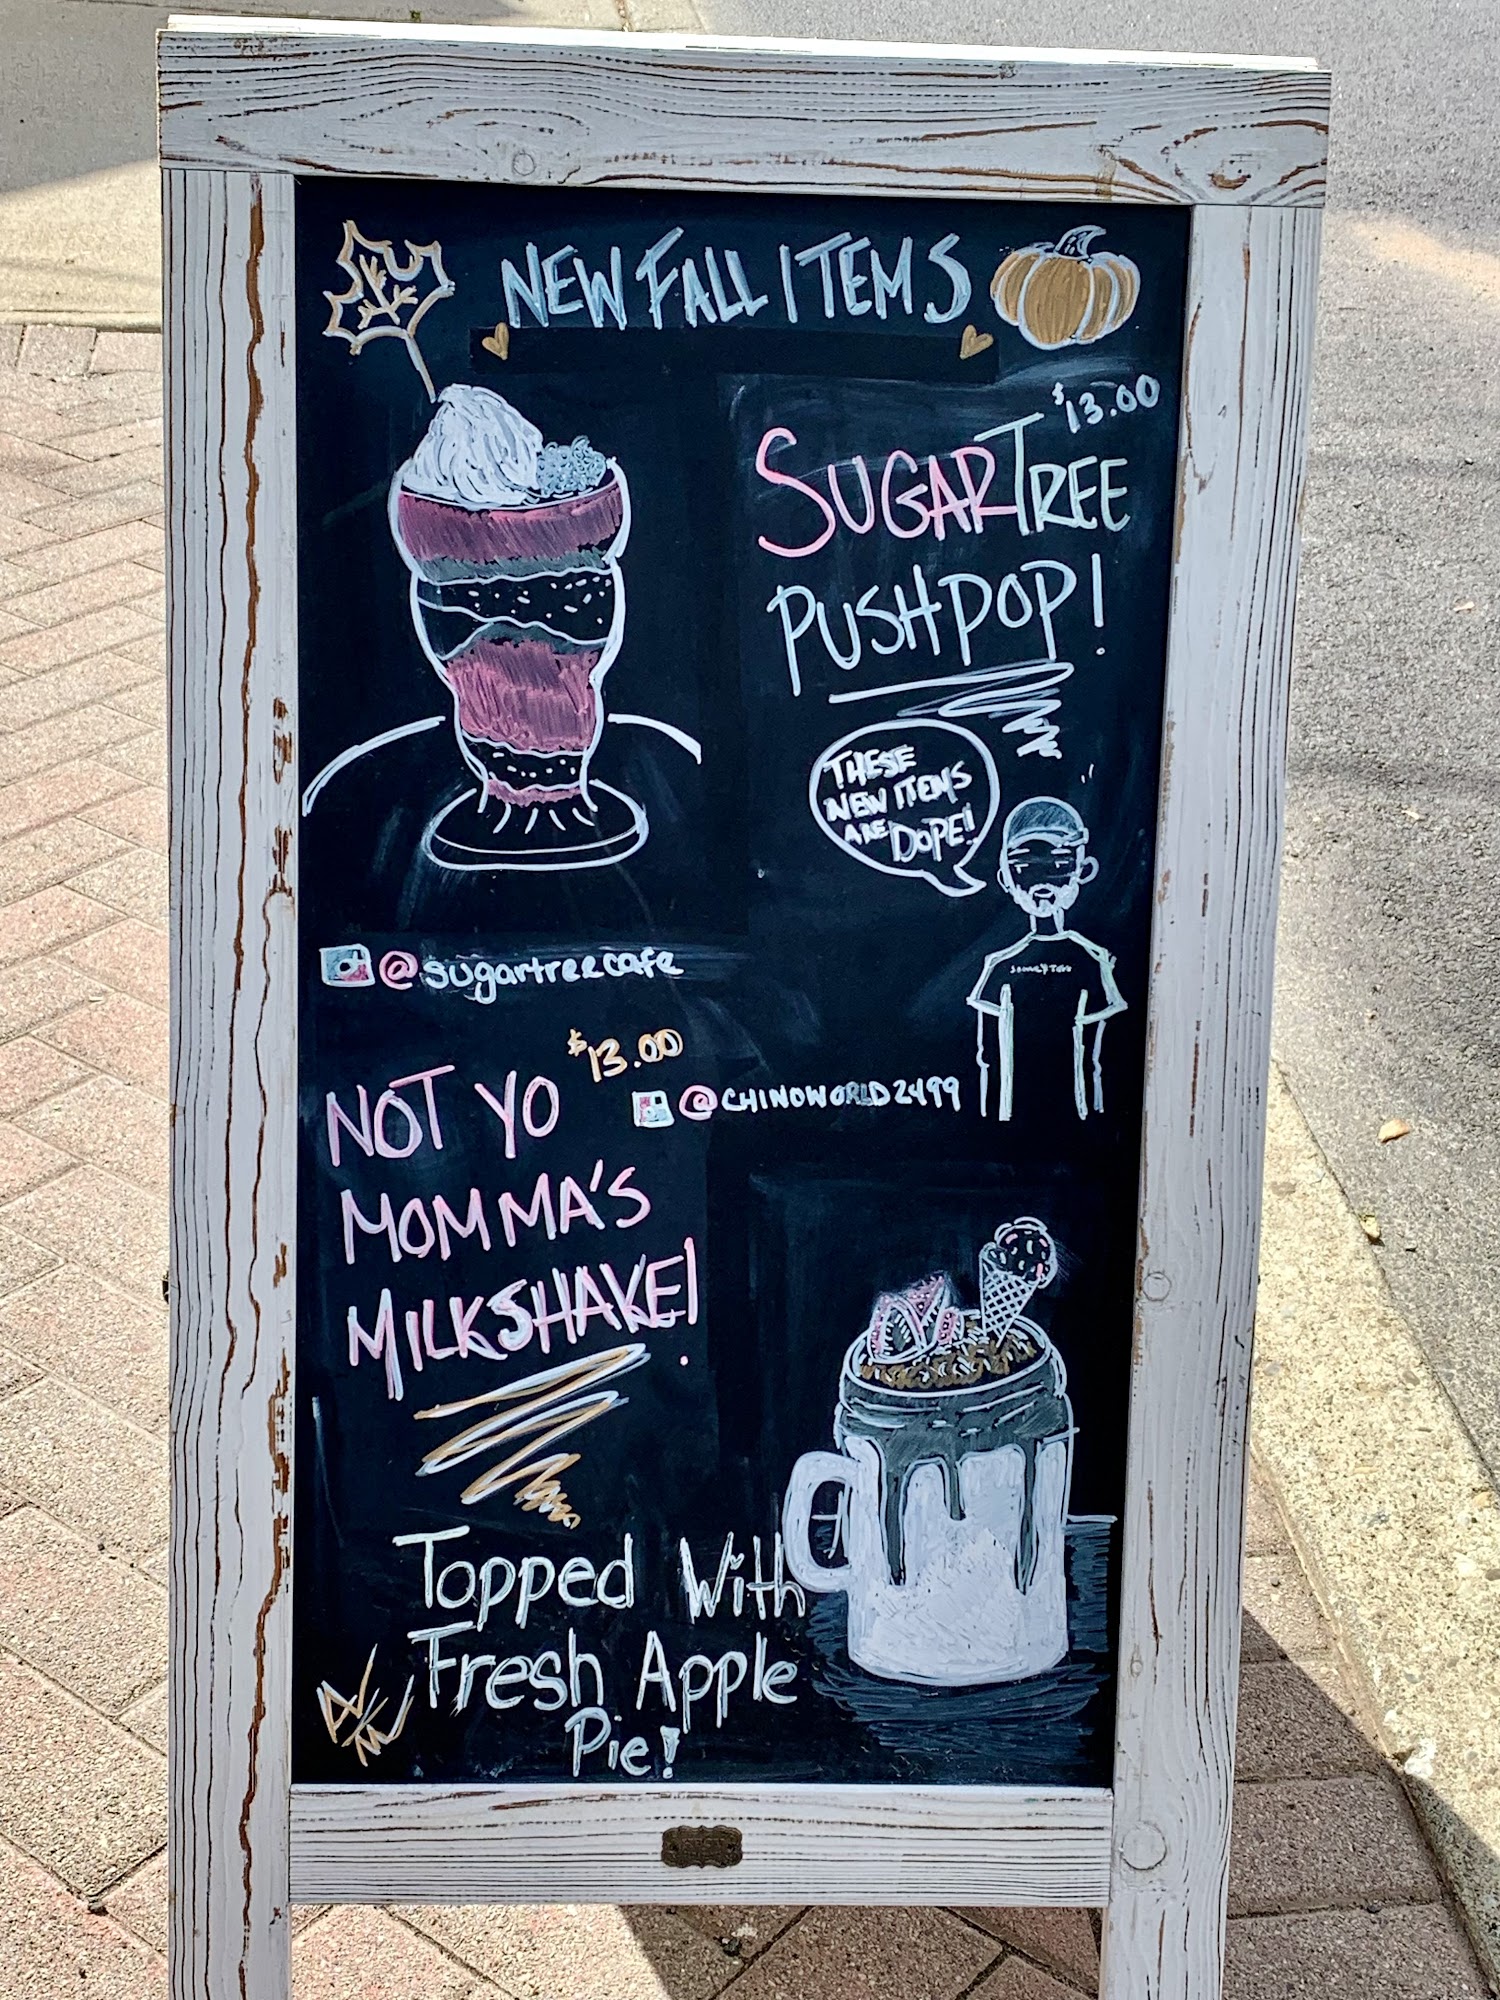 NEW FALL ITEMS
$13.00
SUGARTREE
PUSHPOP!
THESE
NEW ITEMS
ARE DOPE!
@sugartreecafe
$13.00
NOT YO
MOMMA'S
MILKSHAKE!
@CHINOWORLD2499
Topped With
Fresh Apple
Pie!